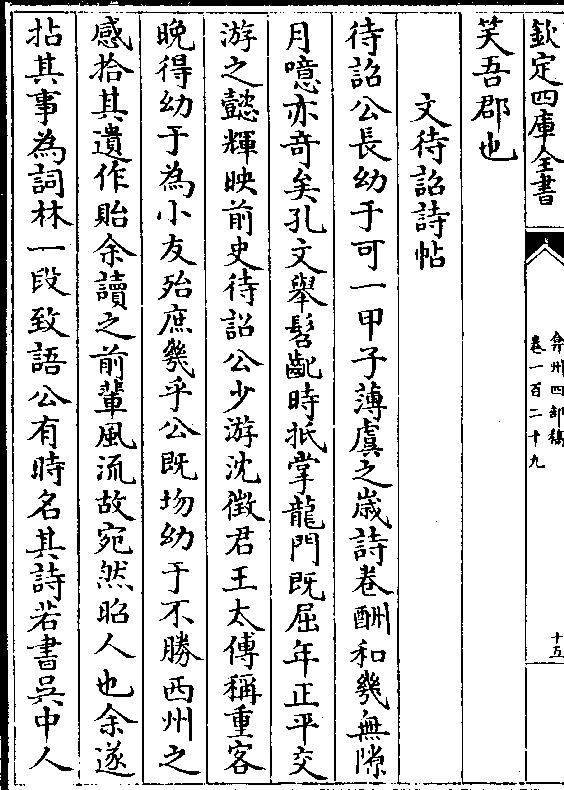 欽定四庫全書
弇州四部稿
卷一百二十九
十五
笑吾郡也
文待詔詩帖
待詔公長幼于可一甲子薄虞之歲詩卷酬和幾無隙
月噫亦奇矣孔文舉髫齔時抵掌龍門既屈年正平交
游之懿輝映前史待詔公少游沈徵君王太傅稱重客
晚得幼于為小友殆庶幾乎公既歾幼于不勝西州之
感拾其遺作貽余讀之前輩風流故宛然昭人也余遂
拈其事為詞林一段致語公有時名其詩若書吳中人